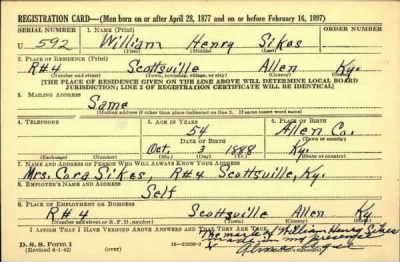 REGISTRATION CARD—(Men born on or after April 28, 1877 and on or before February 16, 1897)
SERIAL NUMBER 1. NAME (Print) ORDER NUMBER
U 592 William Henry Sikes
(First) (Middle) (Last)
2. PLACE OF RESIDENCE (Print)
R#4 Scottsville Allen Ky.
(Number and street) (Town, township, village, or city) (County) (State)
[THE PLACE OF RESIDENCE GIVEN ON THE LINE ABOVE WILL DETERMINE LOCAL BOARD
JURISDICTION; LINE 2 OF REGISTRATION CERTIFICATE WILL BE IDENTICAL]
3. MAILING ADDRESS
Same
[Mailing address if other than place indicated on line 2. If same insert word same]
4. TELEPHONE 5. AGE IN YEARS 6. PLACE OF BIRTH
54 Allen Co.
DATE OF BIRTH (Town or county)
Oct. 3 1888 Ky.
(Exchange) (Number) (Mo.) (Day) (Yr.) (State or country)
7. NAME AND ADDRESS OF PERSON WHO WILL ALWAYS KNOW YOUR ADDRESS
Mrs. Cora Sikes, R#4 Scottsville, Ky.
8. EMPLOYER'S NAME AND ADDRESS
Self
9. PLACE OF EMPLOYMENT OR BUSINESS
R#4 Scottsville Allen Ky.
(Number and street or R. F. D. number) (Town) (County) (State)
I AFFIRM THAT I HAVE VERIFIED ABOVE ANSWERS AND THAT THEY ARE TRUE.
The mark of William Henry Sikes
X made in my presence
D. S. S. Form 1
(Revised 4-1-42) (over)